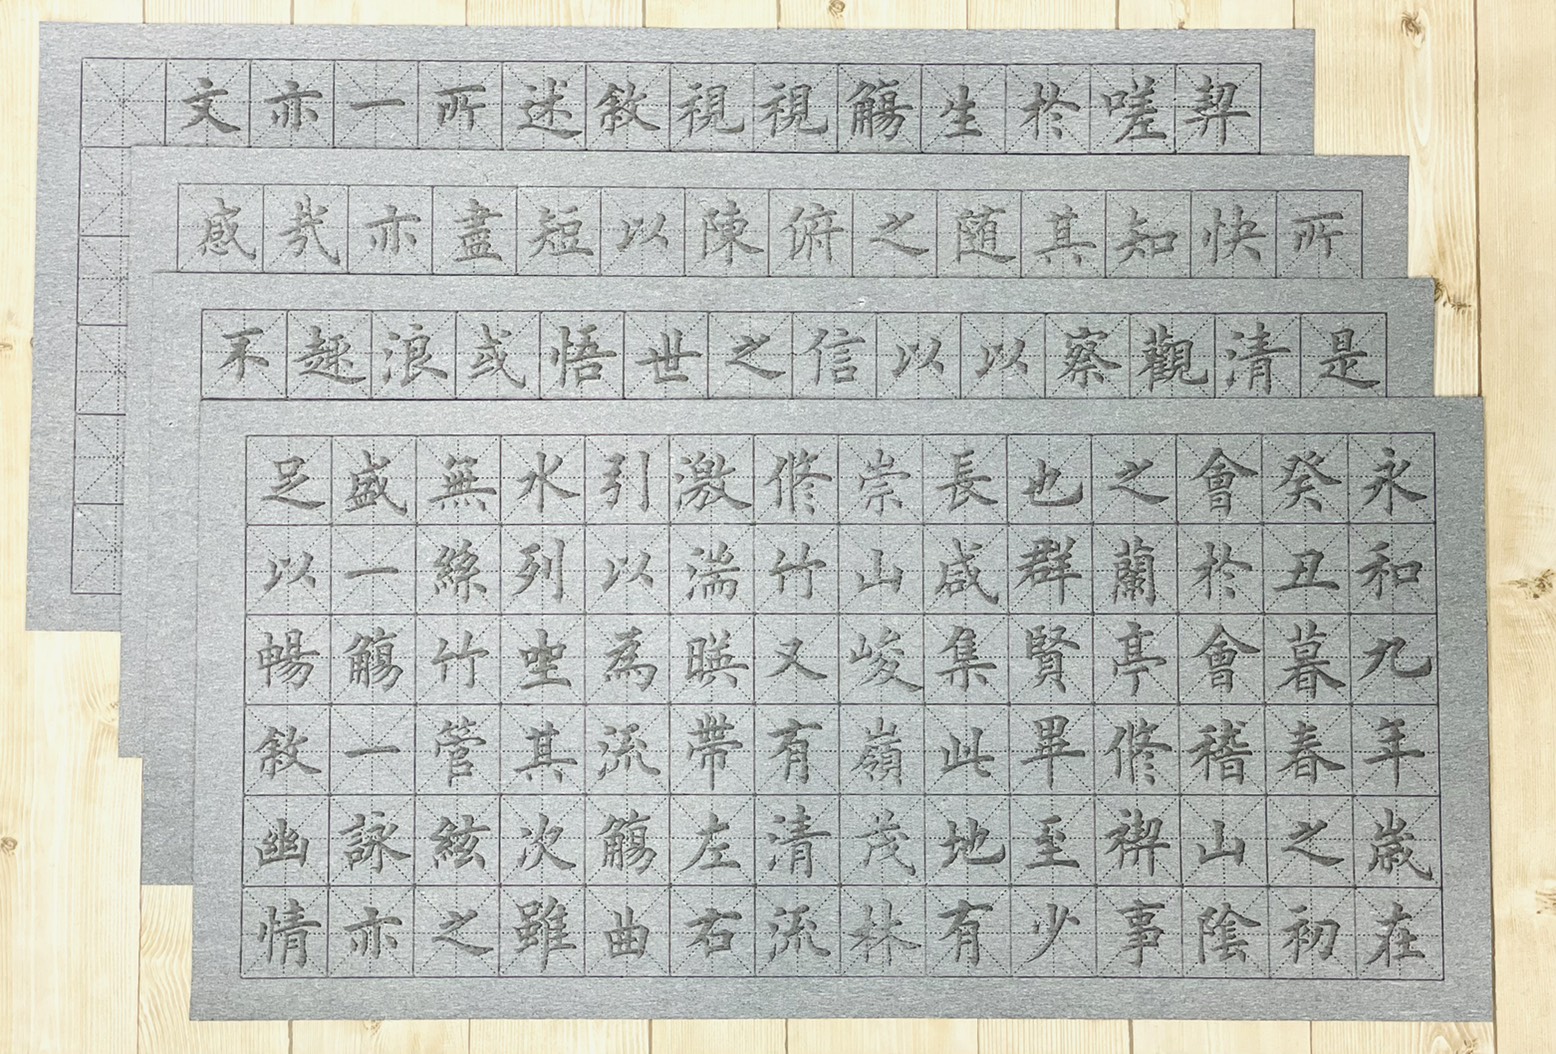 永和九年歲在
癸丑暮春之初
會於會稽山陰
之蘭亭修禊事
也群賢畢至少
長咸集此地有
崇山峻嶺茂林
修竹又有清流
激湍暎帶左右
引以為流觴曲
水列坐其次雖
無絲竹管絃之
盛一觴一詠亦
足以暢敘幽情
是清觀察以以信之世悟或浪趣不
所快知其随之俯陳以短盡亦哉感
契嗟於生觴視視敘述所一亦文